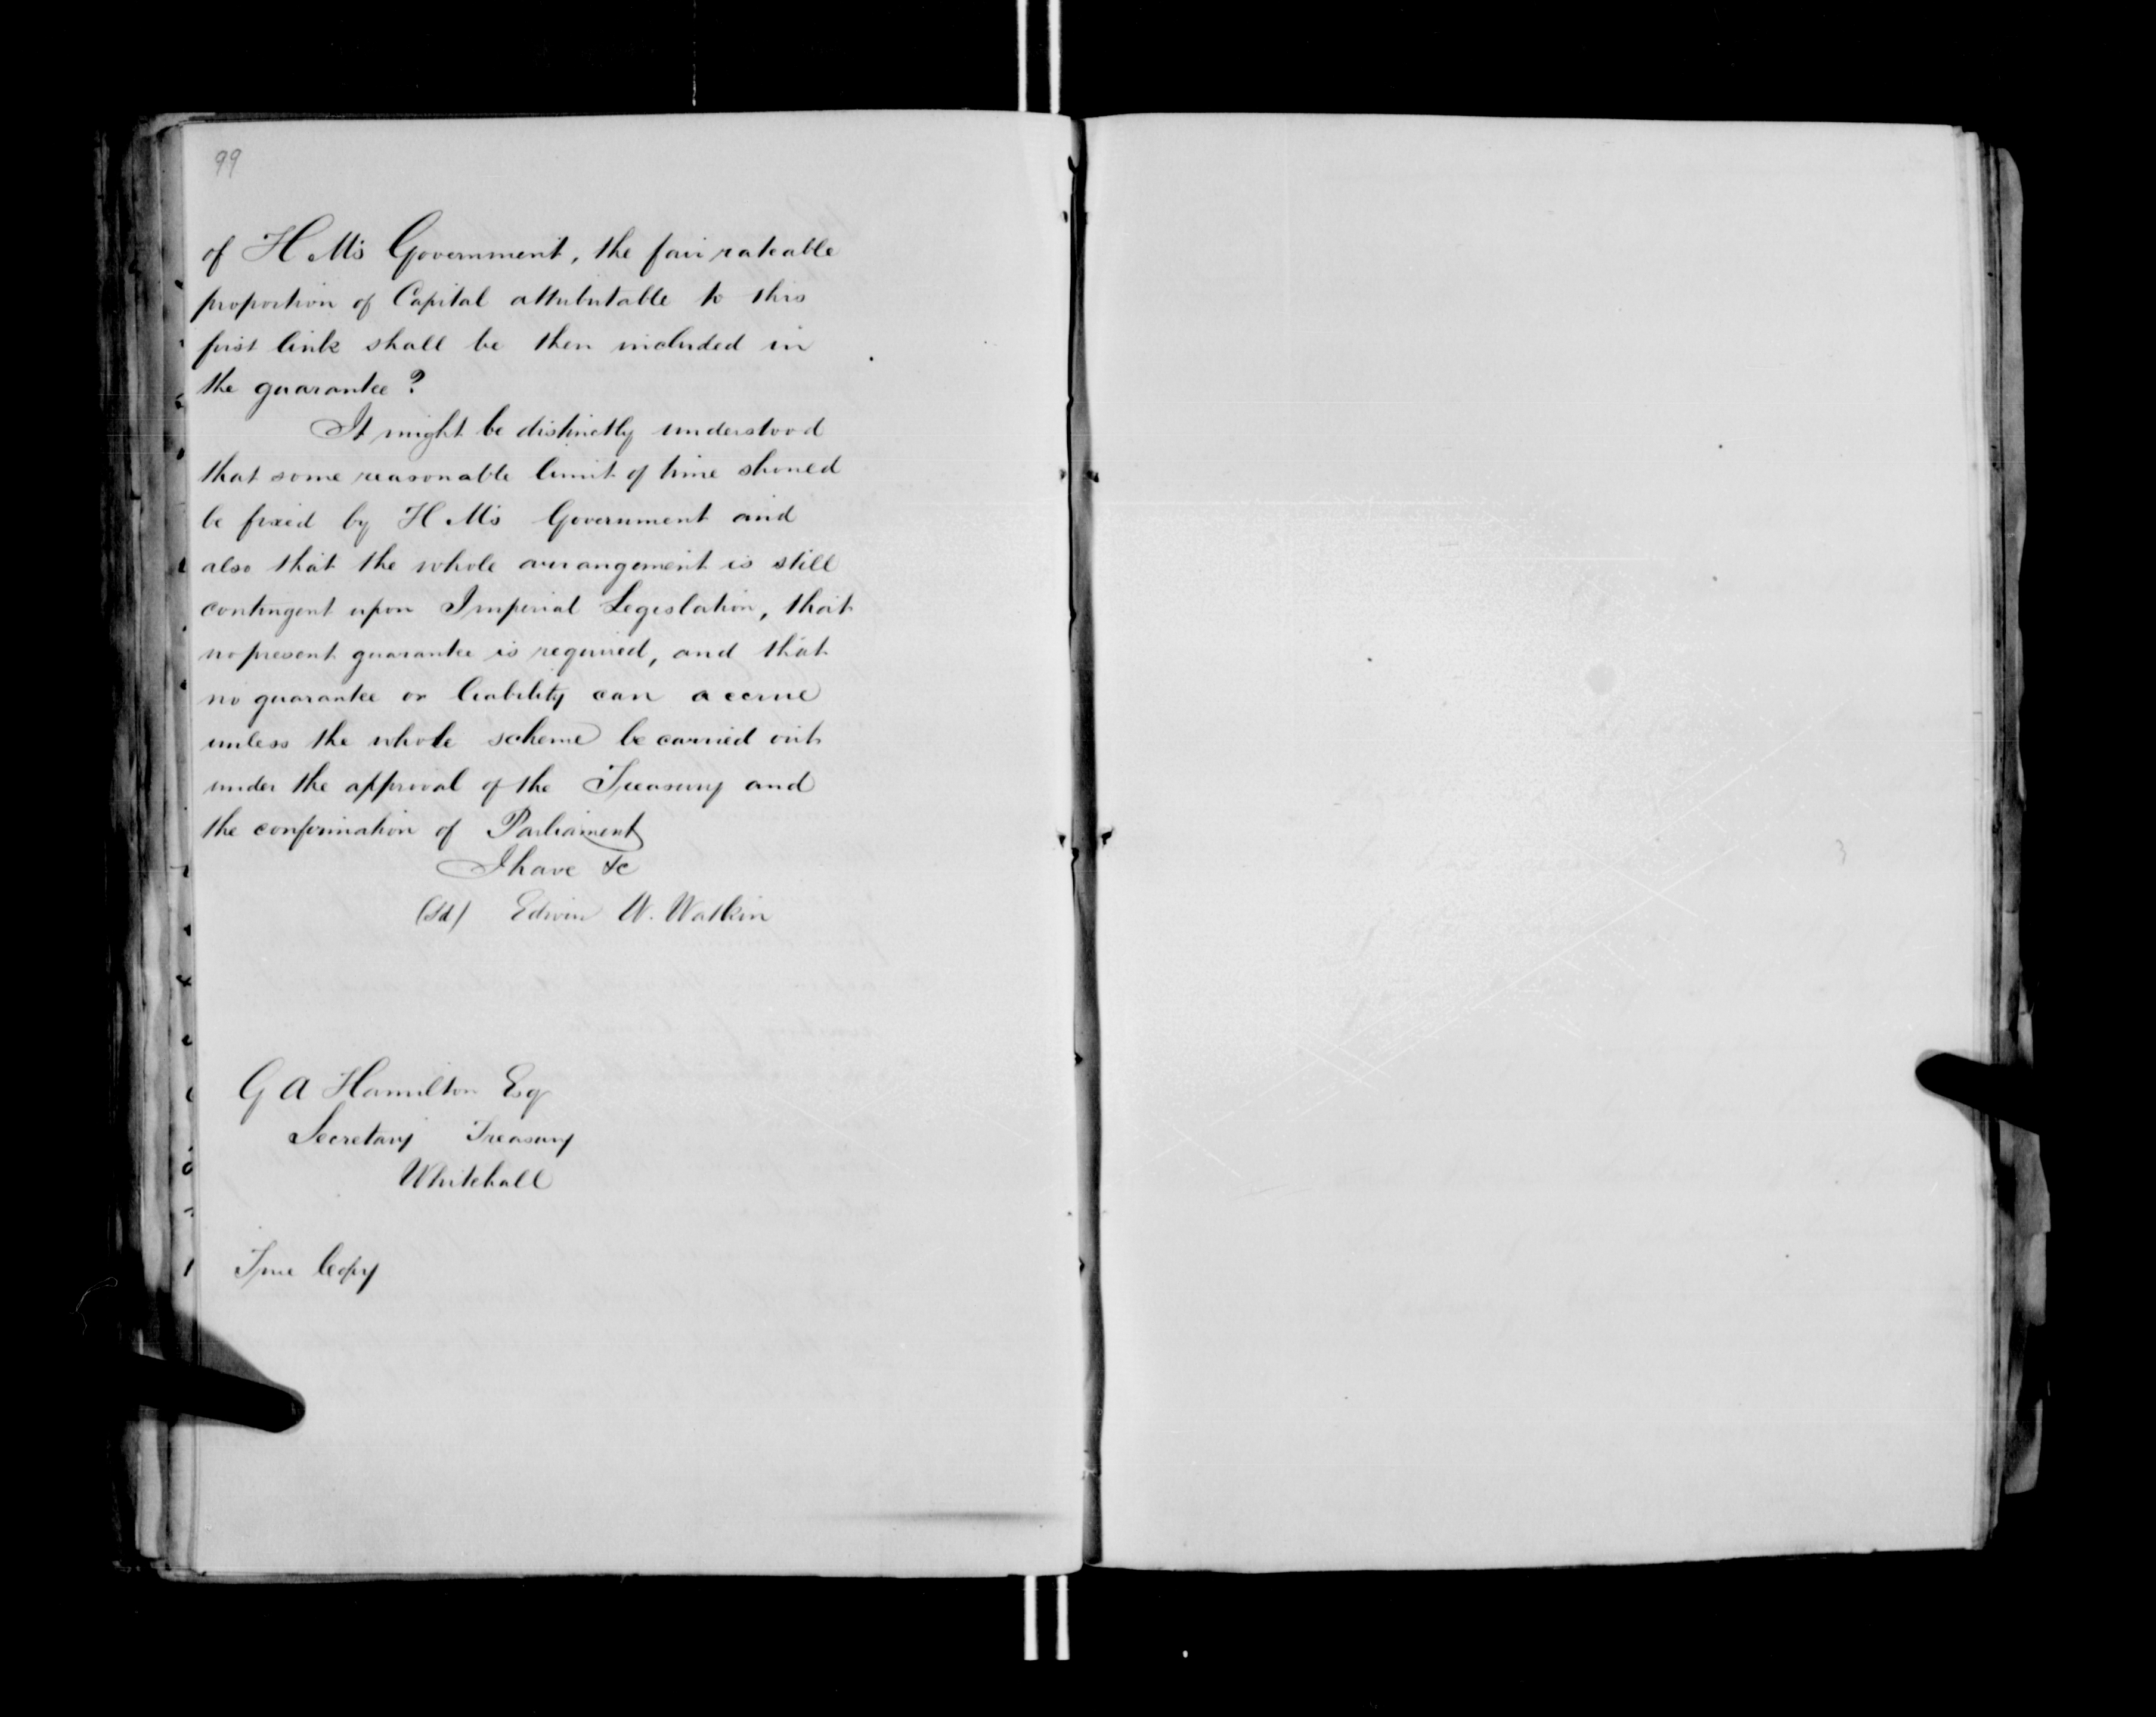 99
of H. M's Government, the fair rateable
proportion of Capital attributable to this
first link shall be then included in
the guarantee?
It might be distinctly understood
that some reasonable limit of time should
be fixed by H M's Government and
also that the whole arrangement is still
contingent upon Imperial Legislation, that
no present guarantee is required, and that
no guarantee or liability can accrue
unless the whole scheme be carried out
under the approval of the Treasury and
the confirmation of Parliament
I have &c
(Sd) Edwin W. Watkin
G A Hamilton Esq
Secretary Treasury
Whitehall
True Copy